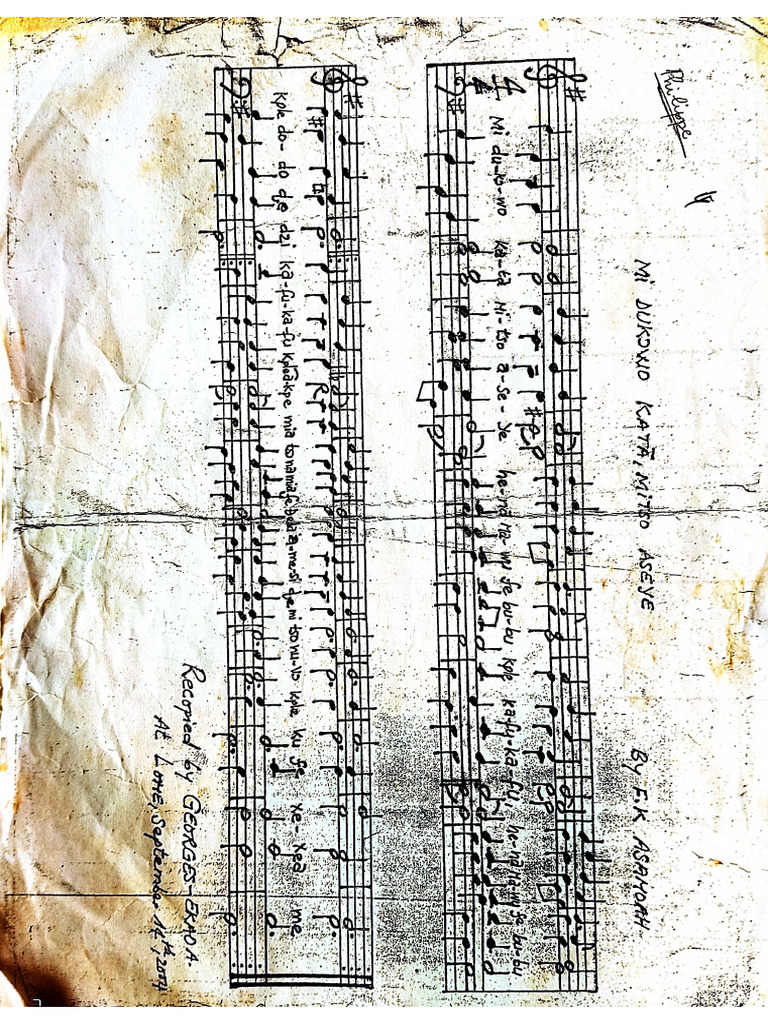 Philippe
MI DUKɔWO KATÃ, MITSO ASEYE
By F.K ASAMOAH
4
4
Mi du-kɔ-wo ka-tã Mi-tso a-se-ye he-nã Ha-wu fe bu-bu kple ka-fu-ka-fu, he-nã Ha-wu fe bu-bu
kple do-do ɖe dzi ka-fu-ka-fu kple mia a-me-si mi tso nu-wo kple ku fe xe-xea me
Recopied by GEORGES-ERADA
At LOME, September 14th, 2004